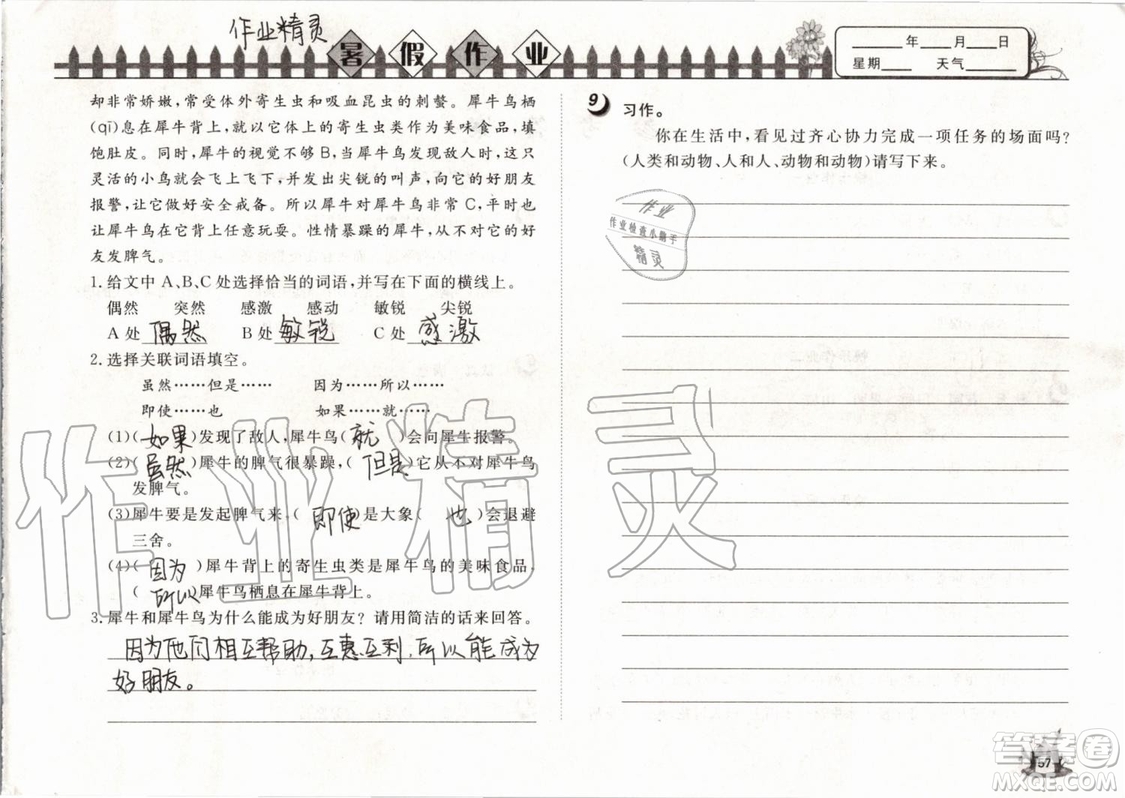 作业精灵
暑假作业
____年____月____日
星期____ 天气______
却非常娇嫩，常受体外寄生虫和吸血昆虫的刺螫。犀牛鸟栖
(qī)息在犀牛背上，就以它体上的寄生虫类作为美味食品，填
饱肚皮。同时，犀牛的视觉不够 B，当犀牛鸟发现了敌人时，这只
灵活的小鸟就会飞上飞下，并发出尖锐的叫声，向它的好朋友
报警，让它做好安全戒备。所以犀牛对犀牛鸟非常 C，平时也
让犀牛鸟在背上任意玩耍。性情暴躁的犀牛，从不对它的好朋
友发脾气。
1.给文中 A、B、C 处选择恰当的词语，并写在下面的横线上。
偶然 突然 感激 感动 敏锐 尖锐
A 处 偶然 B 处 敏锐 C 处 感激
2.选择关联词语填空。
虽然……但是…… 因为……所以……
即使……也 如果……就……
(1)(如果)发现了敌人，犀牛鸟(就)会向犀牛报警。
(2)(虽然)犀牛的脾气很暴躁，(但是)它从不对犀牛鸟
发脾气。
(3)犀牛要是发起脾气来，(即使)是大象(也)会退避
三舍。
(4)(因为)犀牛背上的寄生虫类是犀牛鸟的美味食品，
(所以)犀牛鸟栖息在犀牛背上。
3.犀牛和犀牛鸟为什么能成为好朋友？请用简洁的话来回答。
因为他们相互帮助，互惠互利，所以能成为
好朋友。
9 习作。
你在生活中，看见过齐心协力完成一项任务的场面吗？
(人类和动物、人和人、动物和动物)请写下来。
作业
作业检查小助手
精灵
作业精灵
答案卷
MXQE.COM
57